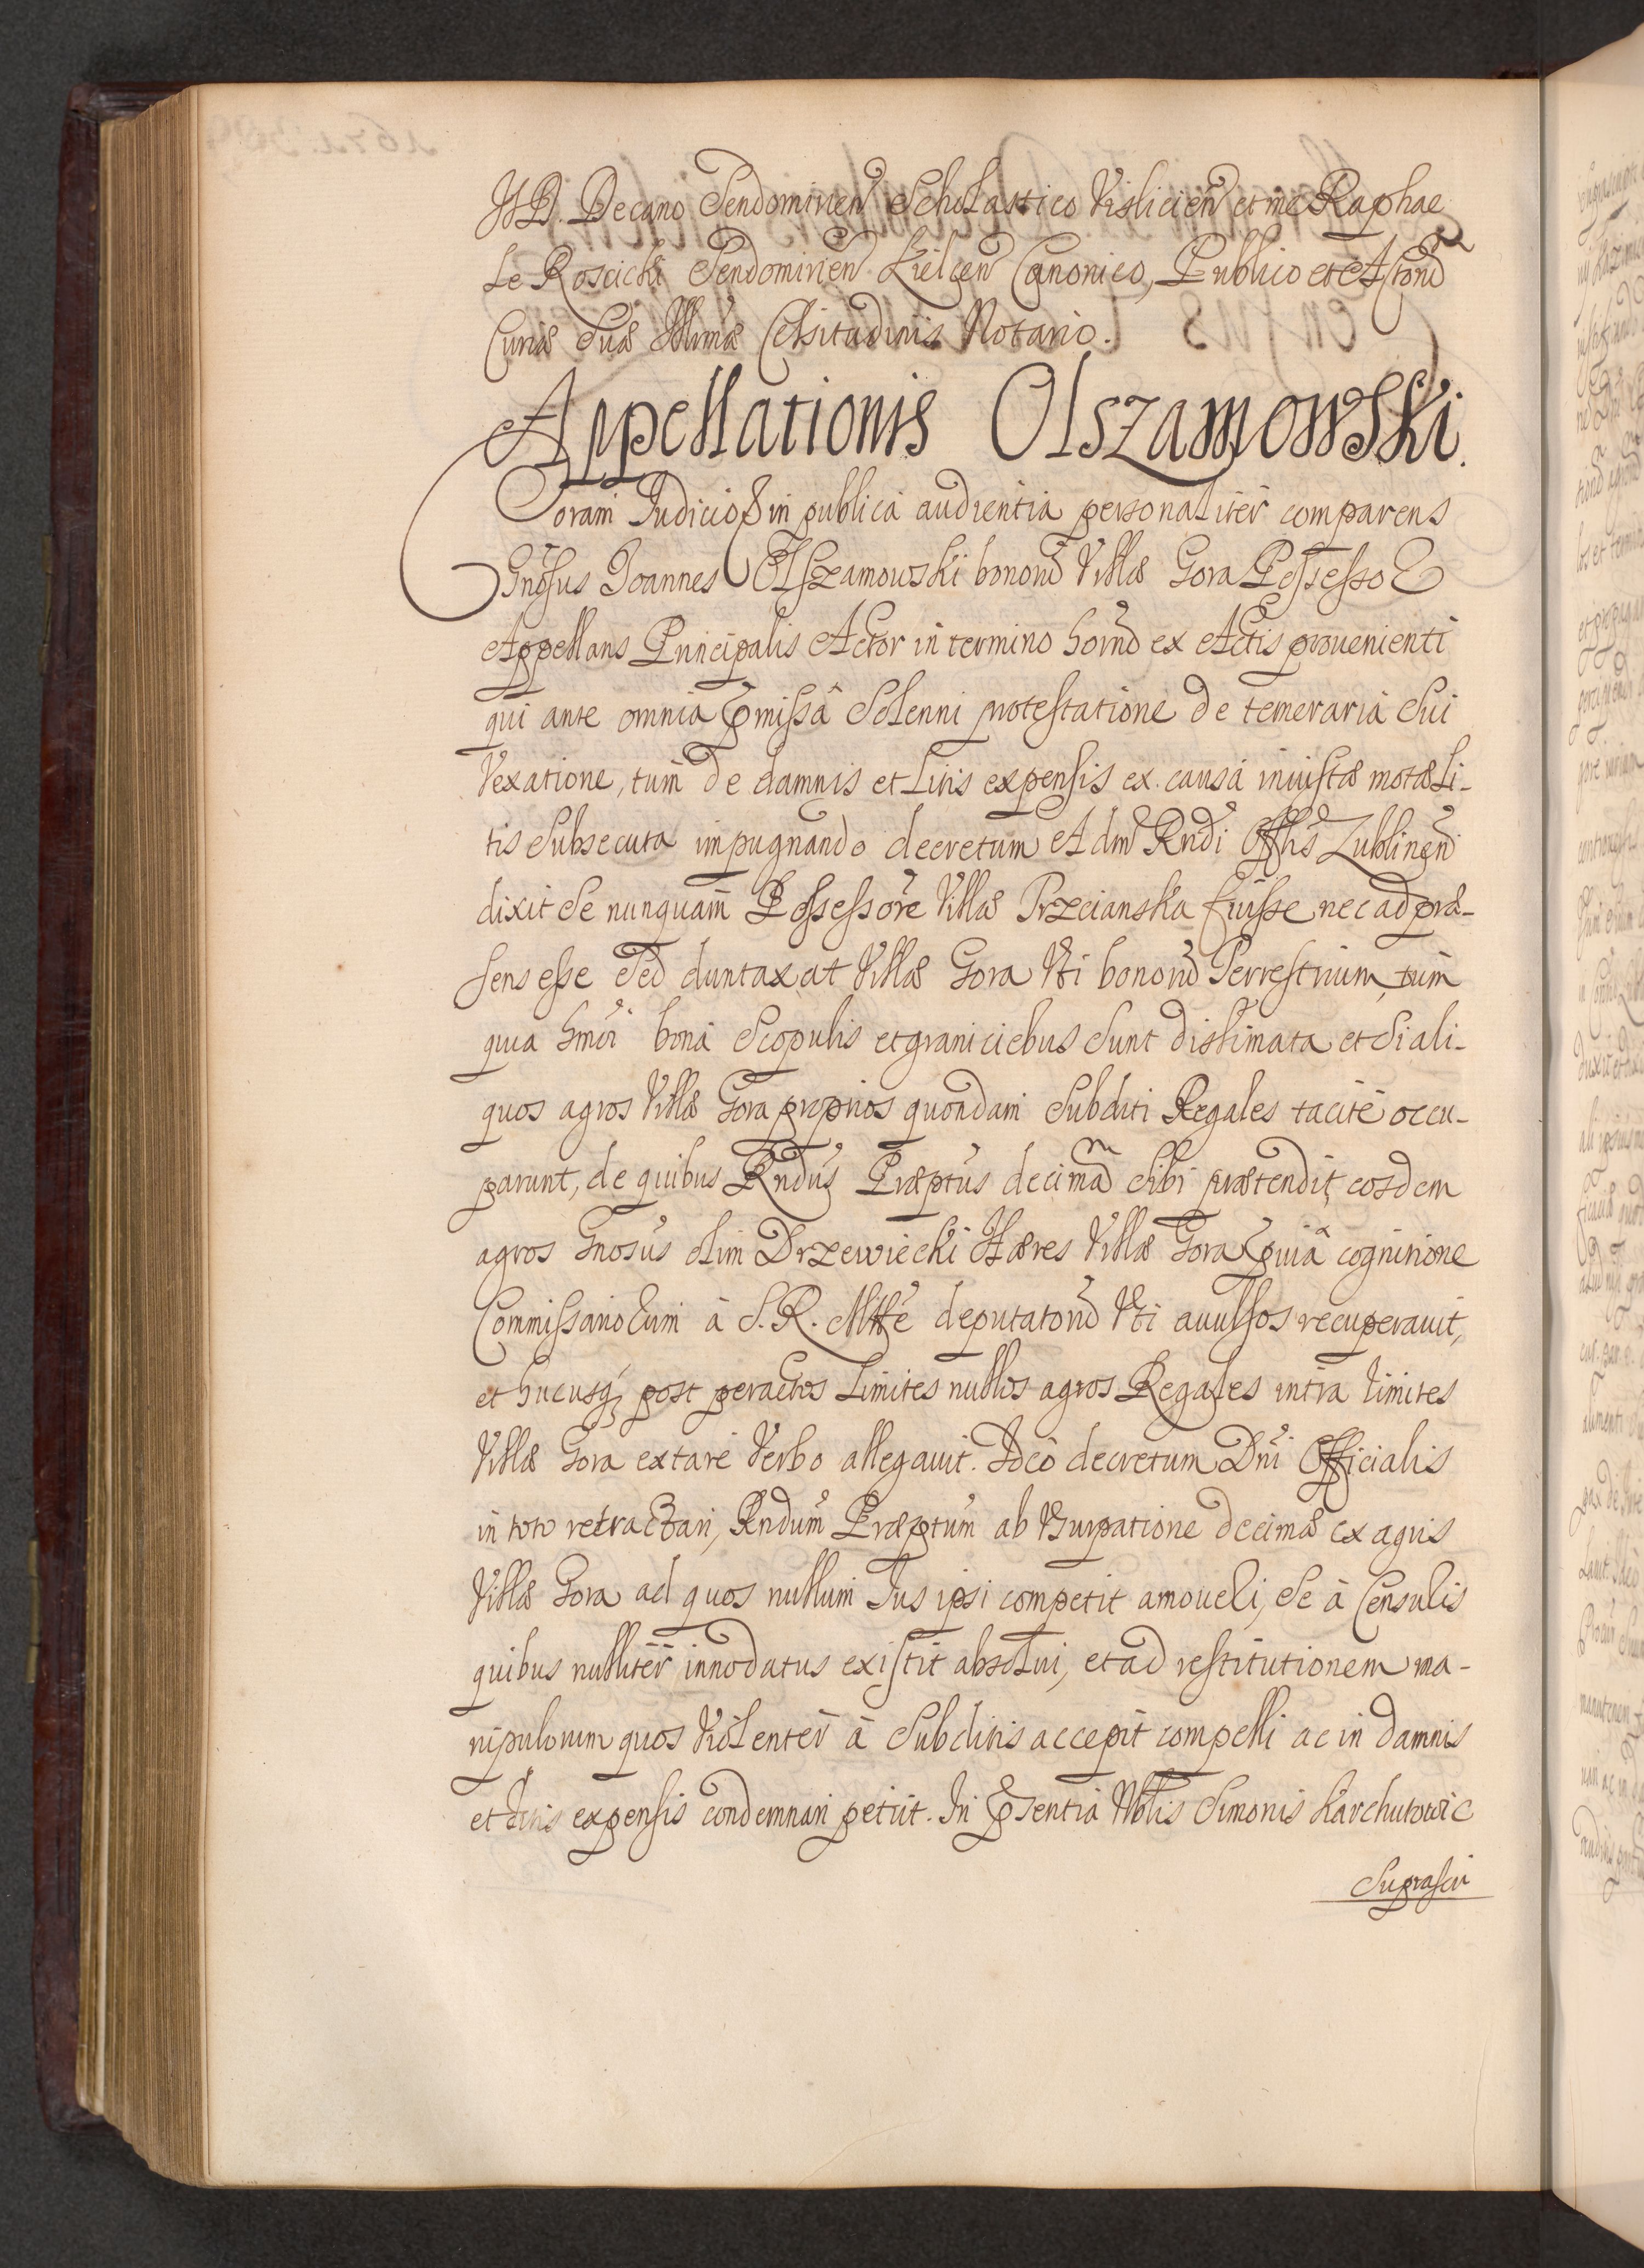 JJD. Decano Sendomirień Scholastico Vislicień et me Raphae
le Roscicki Sendomirień Kielceń Canonico, Publico et Actorũ
Curiæ Suæ Illmæ Celsitudinis Notario.
Appellationis Olszamowski.
Coram Judicio & in publicâ audientia personaliter comparens
Gnõsus Joannes Olszamowski bonorũ Villæ Gora Possessor
Appellans Principalis Actor in termino horũ ex Actis prouenienti
qui ante omnia pmissâ Solenni protestatione de temeraria Sui
Vexatione, tum de damnis et Litis expensis ex causa iniustæ motæ Li-
tis Subsecuta impugnando decretum Admõ Rndi Offlis Lublineñ
dixit Se nunquam Possessorẽ Villæ Trzcianska fuisse nec ad præ-
sens esse Sed duntaxat Villæ Gora Vti bonorũ Terrestrium, tum
quia hmõi bona Scopulis et graniciebus Sunt distimata et Si ali-
quos agros Villæ Gora proprios quondam Subditi Regales tacitè occu-
parunt, de quibus Rndus Præptus decimã Sibi prætendit, eosdem
agros Gnosus olim Drzewiecki Hæres Villæ Gora pviâ cognitione
Commissariorum à S.R. Mtte deputatorũ Vti auulsos recuperauit,
et hucusq; post peractos Limites nullos agros Regales intra limites
Villæ Gora extare Verbo allegauit. Ideò decretum Dni Officialis
in toto retractari, Rndum Præptum ab Vsurpatione decimæ ex agris
Villæ Gora ad quos nullum Jus ipsi competit amoueri, Se à Censuris
quibus nulliter innodatus existit absolui, et ad restitutionem ma-
nipulorum quos Violenter à Subditis accepit compelli ac in damnis
et Litis expensis condemnari petiit. In psentia Nblis Simonis Karchutowic
Suprascri